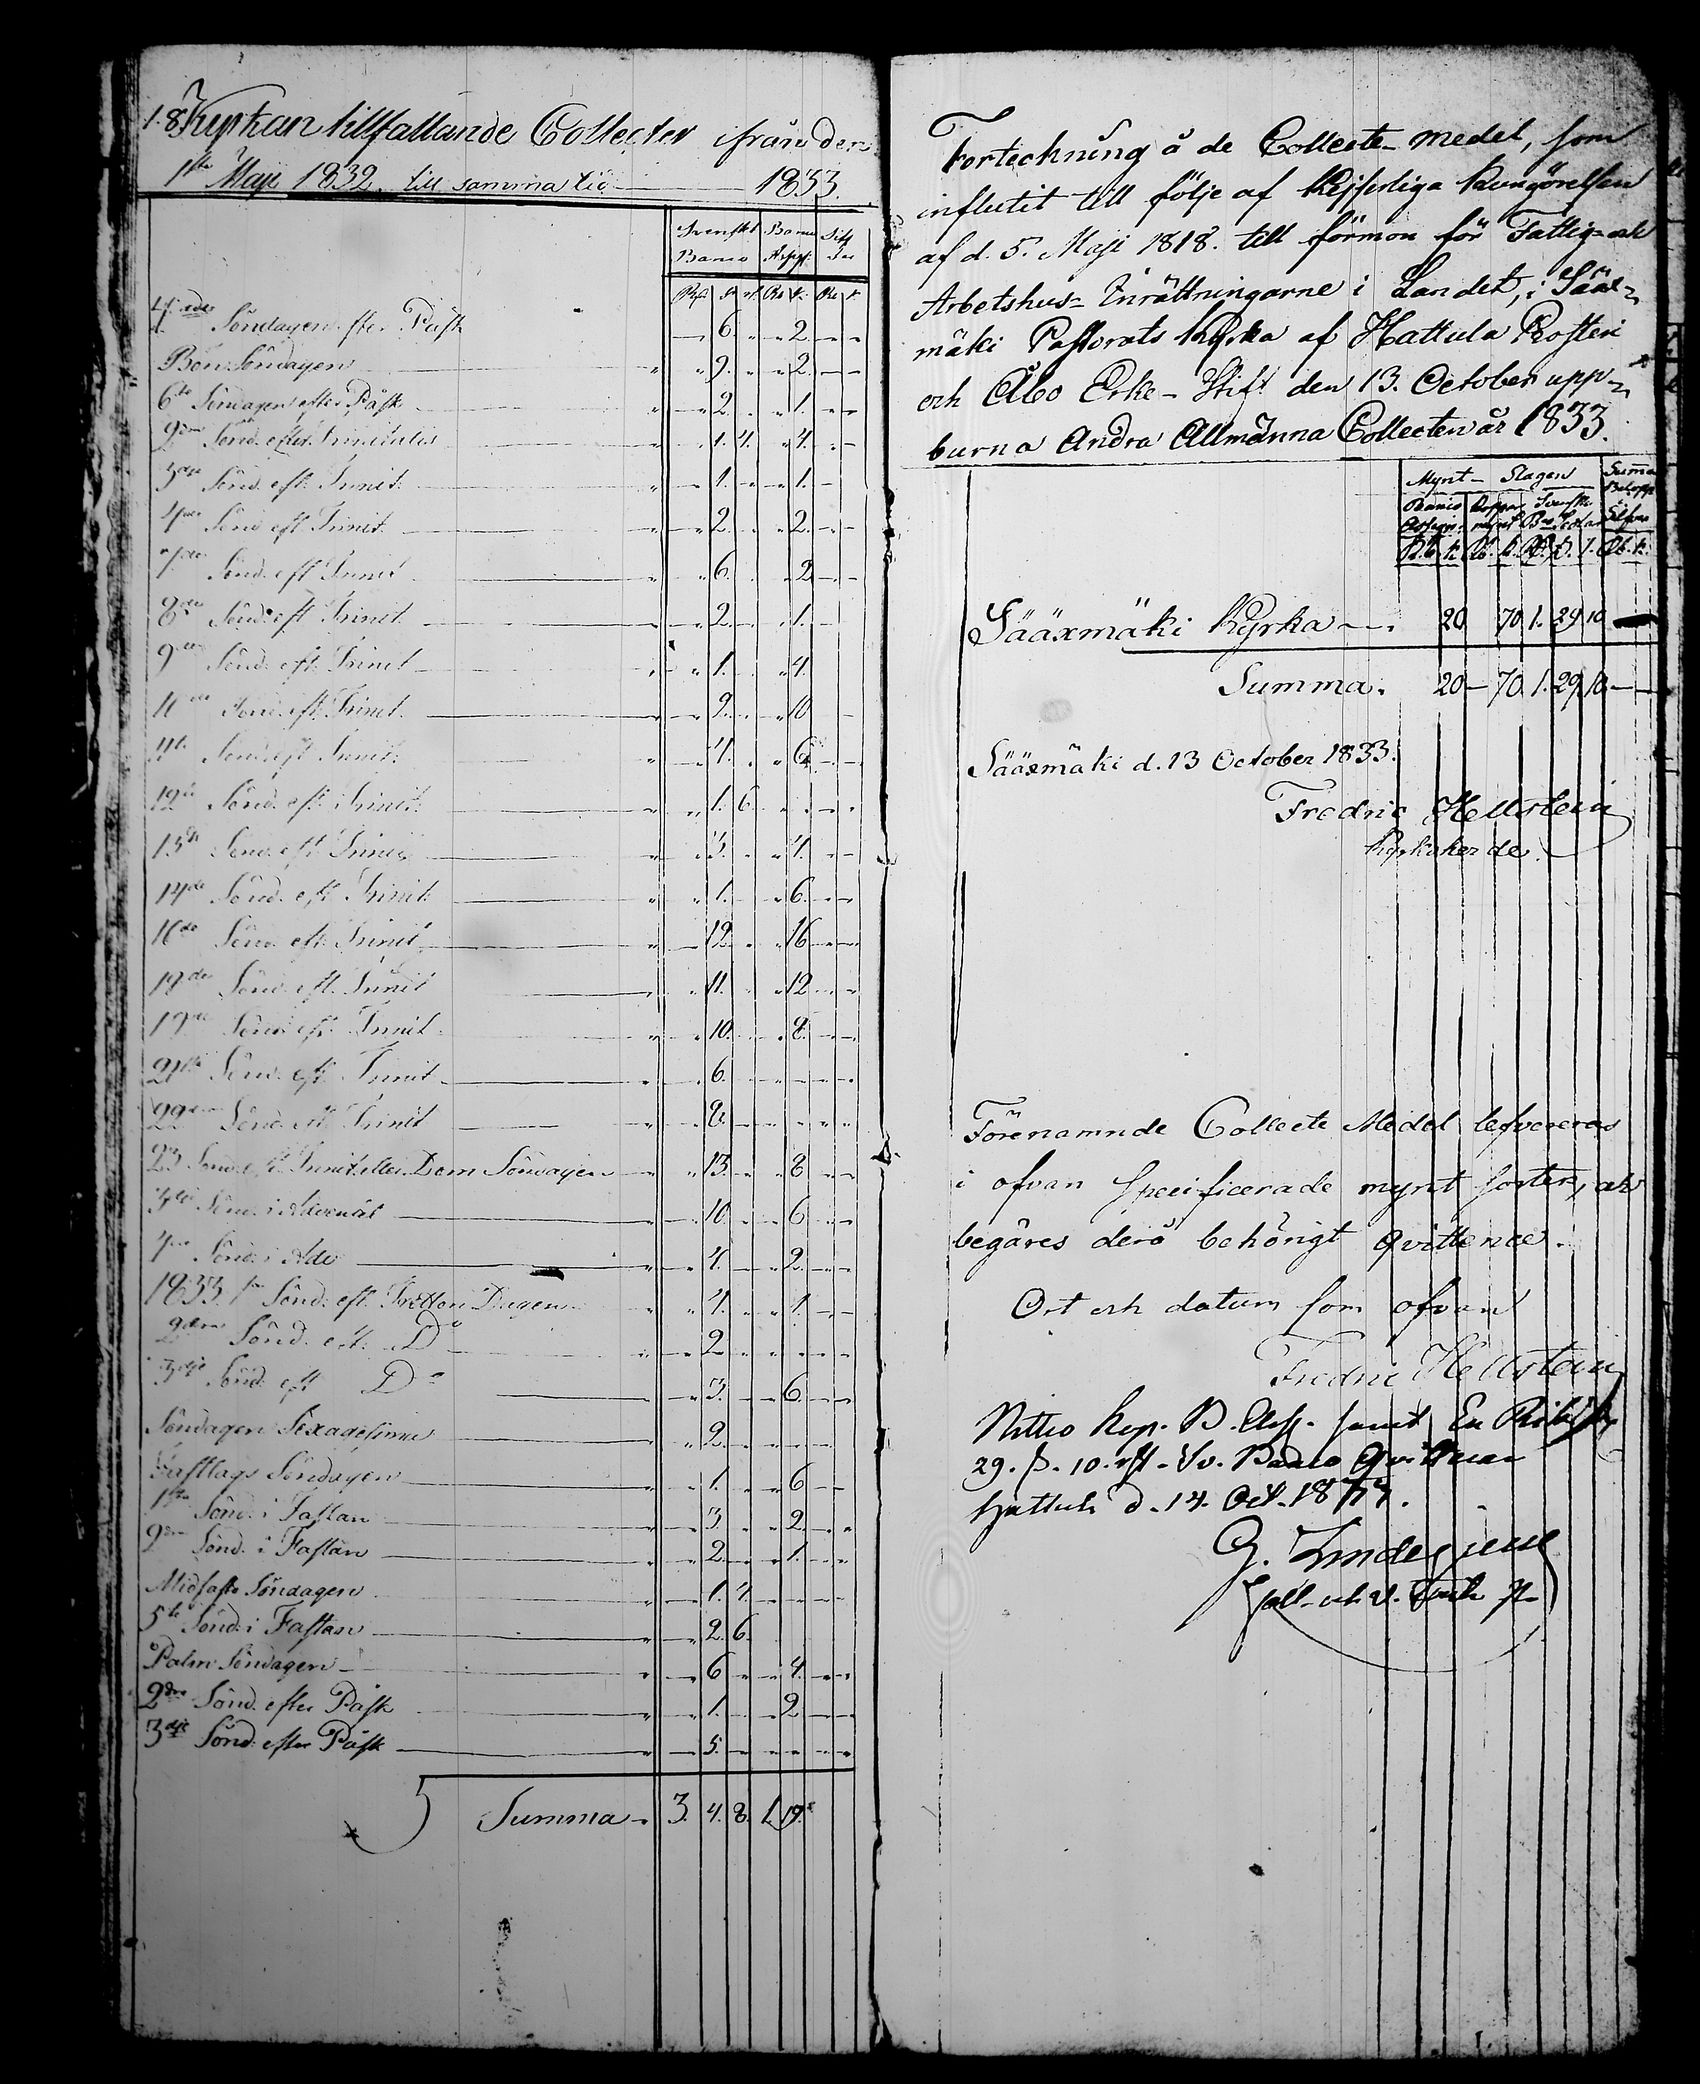 Kyrkan tillfallande Collecter ifrån den
1sta Maji 1832. till samma tid 1833.
Svenskt Banco Silf
Banco Assgt. ver
4de Söndagen efter Påsk — 6. „ „ 2. — —
Bön Söndagen „ 9. „ „ 2. — —
6te Söndagen efter Påsk „ 2. „ „ 1. — —
Sönd. efter Trinitatis „ 1. 4. „ 4. — —
3dje Sönd. eft. Trinit. „ 1. „ „ 1. —
4de Sönd eft. Trinit. „ 2. „ „ 2. — —
Sönd. eft Trinit „ 6. „ „ 2 — —
8de Sönd. eft Trinit. „ 2. „ „ 1. —
9de Sönd. eft. Trinit „ 1. „ „ 4.
Sönd. eft. Trinit. „ 2. „ „ 10 —
Sönd. eft Trinit. „ 4. „ „ 6. — —
12te Sönd. eft. Trinit. „ 1. 6. „ „ — —
13de Sönd. eft. Trinit „ 3. „ „ 4. — —
14de Sönd. eft. Trinit. „ 1. „ „ 6. — —
16de Sönd. eft. Trinit „ 12. „ „ 16 — —
Sönd. eft. Trinit „ 11. „ „ 12 — —
19de Sönd. eft. Trinit. „ 10. „ „ 8. — —
21sta Sönd. eft. Trinit „ 6. — — — —
22dra Sönd. eft. Trinit „ 8. „ „ „ „
23 Sönd. eft. Trinit eller Dom Söndagen „ 13. „ „ 8 — —
3dje Sönd. i Advent „ 10. „ „ 6. — —
4de Sönd. i Adv „ 4. — — 2. — —
1833. 1sta Sönd. eft. Tretton Dagen „ 4. „ „ 1. — —
2dra Sönd. eft. Do „ 2 „ „ „ „
3dje Sönd. eft Do — 3. — — 6. — —
Söndagen Sexagesima „ 2. — — — —
Fastlags Söndagen „ 1. — — 6 — —
1sta Sönd. i Fastan „ 3. „ „ 2. — „
2dra Sönd. i Fastan „ 2. „ „ 1. — „
Midfasto Söndagen „ 1. 4. — — —
5te Sönd. i Fastan „ 2. 6.
Palm Söndagen — 6 „ „ 4. — „
2dra Sönd. efter Påsk „ 1. „ 2 — —
3dje Sönd. efter Påsk — 5. — — — —
Summa 3. 4. 8. 1. 19.
Förteckning å de Collecte-medel, som
influtit till följe af Kejserliga Kungörelsen
af d. 5. Maji 1818. till förmon för Fattig- och
Arbetshus-Inrättningarne i Landet, i Sääx-
mäki Pastorats Kyrka af Hattula Prosteri
och Åbo Erke-Stift den 13. October upp-
burna Andra Allmänna Collecten år 1833.
Mynt-Slagen Summa
Banco Koppar Svenskt Belopp
Assign. mynt Silfver
Rb. k. Rb. k. Rb. k.
Sääxmäki Kyrka 20 70 1. 29 10 —
Summa. 20 — 70. 1. 29 10 — —
Sääxmäki d. 13 October 1833.
Fredric Hellstein
Kyrkoherde.
Förenämnde Collecte Medel lefvereras
i ofvan specificerade mynt sorter, och
begäres derå behörigt qvittence.
Ort och datum som ofvan
Fredric Hellstein
Nittio Kop. B. Ass. samt En Riksd
29. s. 10. rst. Sv. Banco Qvitteras
Hattula d. 14. Oct. 1833.